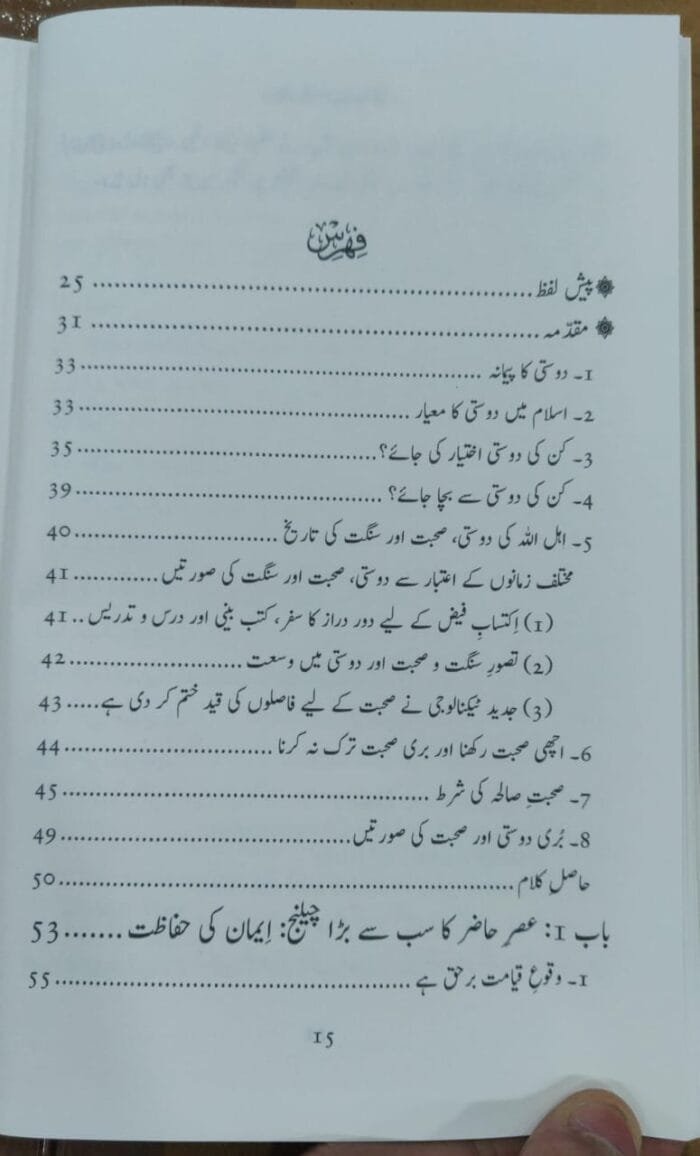 فہرس
پیش لفظ ........ 25
مقدّمہ ........ 31
1۔ دوستی کا پیمانہ ........ 33
2۔ اسلام میں دوستی کا معیار ........ 33
3۔ کن کی دوستی اختیار کی جائے؟ ........ 35
4۔ کن کی دوستی سے بچا جائے؟ ........ 39
5۔ اہل اللہ کی دوستی، صحبت اور سنگت کی تاریخ ........ 40
مختلف زمانوں کے اعتبار سے دوستی، صحبت اور سنگت کی صورتیں ........ 41
(1) اِکتسابِ فیض کے لیے دور دراز کا سفر، کتب بینی اور درس و تدریس .. 41
(2) تصورِ سنگت و صحبت اور دوستی میں وسعت ........ 42
(3) جدید ٹیکنالوجی نے صحبت کے لیے فاصلوں کی قید ختم کر دی ہے ..... 43
6۔ اچھی صحبت رکھنا اور بری صحبت ترک نہ کرنا ........ 44
7۔ صحبتِ صالحہ کی شرط ........ 45
8۔ بُری دوستی اور صحبت کی صورتیں ........ 49
حاصلِ کلام ........ 50
باب 1: عصرِ حاضر کا سب سے بڑا چیلنج: اِیمان کی حفاظت ....... 53
1۔ وقوعِ قیامت برحق ہے ........ 55
15